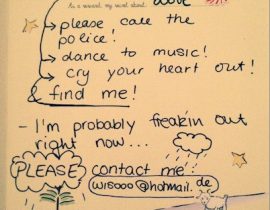 As a reward, my secret about:
love
→ please call the
police!
→ dance to music!
→ cry your heart out!
& find me!
- I'm probably freakin out
right now...
PLEASE contact me:
wisooo@hotmail.de